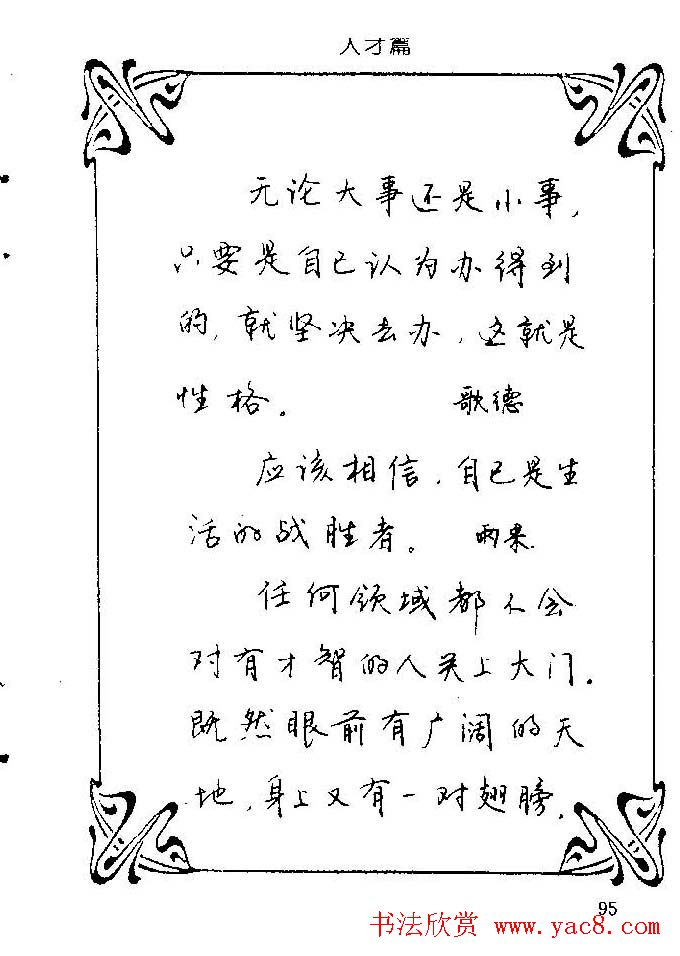 人才篇
无论大事还是小事,
只要是自己认为办得到
的,就坚决去办,这就是
性格。 歌德
应该相信,自己是生
活的战胜者。 雨果
任何领域都不会
对有才智的人关上大门.
既然眼前有广阔的天
地,身上又有一对翅膀,
95
书法欣赏 www.yac8.com